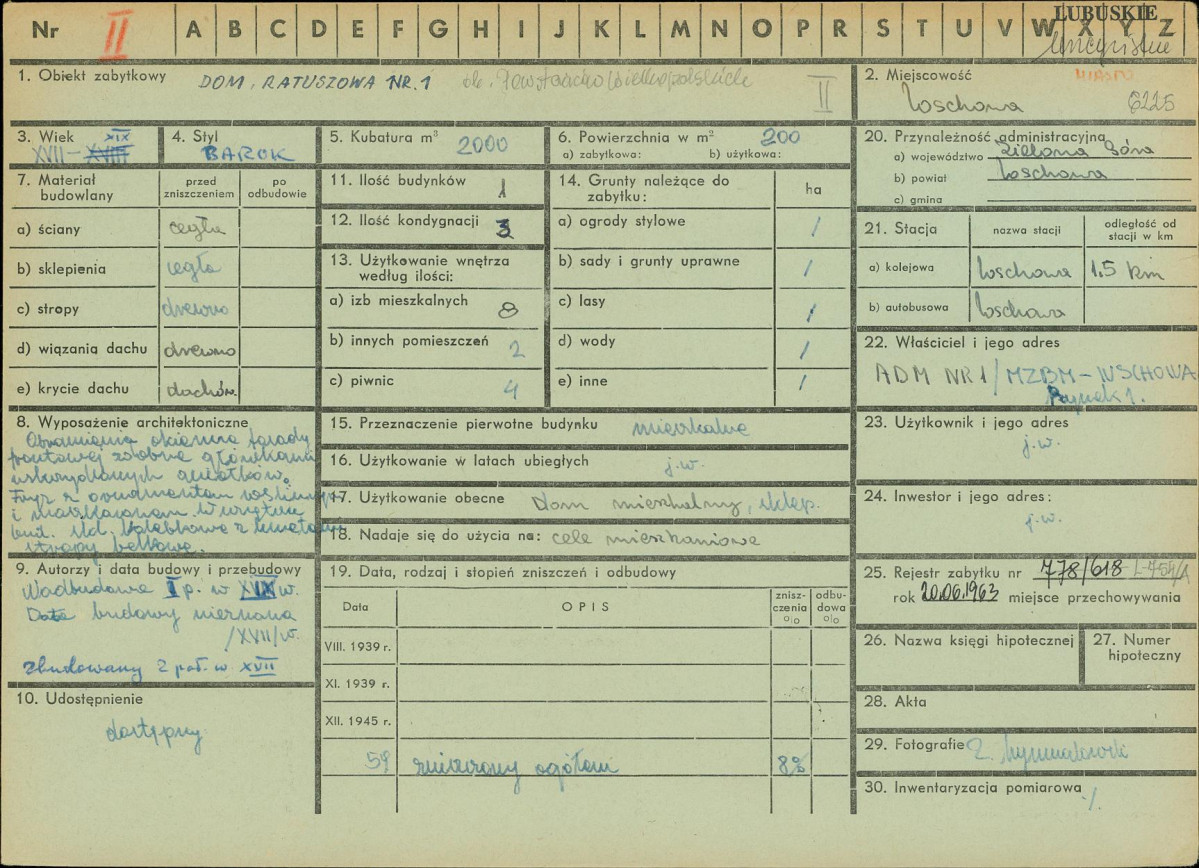 Nr II A B C D E F G H I J K L M N O P R S T U V W X Y Z
LUBUSKIE
1. Obiekt zabytkowy DOM, RATUSZOWA NR. 1 ob. Powstańców Wielkopolskich II
2. Miejscowość MIASTO
Wschowa 6225
3. Wiek XIX
XVII – XVIII
4. Styl
BAROK
5. Kubatura m³ 2000
6. Powierzchnia w m² 200
a) zabytkowa: b) użytkowa:
7. Materiał budowlany
przed zniszczeniem
po odbudowie
a) ściany cegła
b) sklepienia cegła
c) stropy drewno
d) wiązania dachu drewno
e) krycie dachu dachów.
8. Wyposażenie architektoniczne
Obramienia okienne fasady
frontowej zdobne główkami
uskrzydlonych aniołków.
Fryz z ornamentem roślinnym
i maszkaronem. Wewnątrz
bud. skl. kolebkowe z lunetami
stropy belkowe.
9. Autorzy i data budowy i przebudowy
Nadbudowa II p. w XIX w.
Data budowy nieznana
/XVII/w.
zbudowany 2 poł. w. XVII
10. Udostępnienie
dostępny
11. Ilość budynków 1
12. Ilość kondygnacji 3
13. Użytkowanie wnętrza
według ilości:
a) izb mieszkalnych 8
b) innych pomieszczeń 2
c) piwnic 4
14. Grunty należące do
zabytku:
ha
a) ogrody stylowe /
b) sady i grunty uprawne /
c) lasy /
d) wody /
e) inne /
15. Przeznaczenie pierwotne budynku mieszkalne
16. Użytkowanie w latach ubiegłych j.w.
17. Użytkowanie obecne dom mieszkalny, sklep.
18. Nadaje się do użycia na: cele mieszkaniowe
19. Data, rodzaj i stopień zniszczeń i odbudowy
Data OPIS zniszczenia o/o odbudowa o/o
VIII. 1939 r.
XI. 1939 r.
XII. 1945 r.
59 zniszczony ogółem 8%
20. Przynależność administracyjna
a) województwo Zielona Góra
b) powiat Wschowa
c) gmina
21. Stacja
nazwa stacji
odległość od
stacji w km
a) kolejowa Wschowa 1.5 km
b) autobusowa Wschowa
22. Właściciel i jego adres
ADM NR 1 / MZBM – WSCHOWA
Rynek 1.
23. Użytkownik i jego adres
j.w.
24. Inwestor i jego adres:
j.w.
25. Rejestr zabytku nr 778/618
rok 20.06.1963 miejsce przechowywania
26. Nazwa księgi hipotecznej
27. Numer
hipoteczny
28. Akta
29. Fotografie
30. Inwentaryzacja pomiarowa
·/.